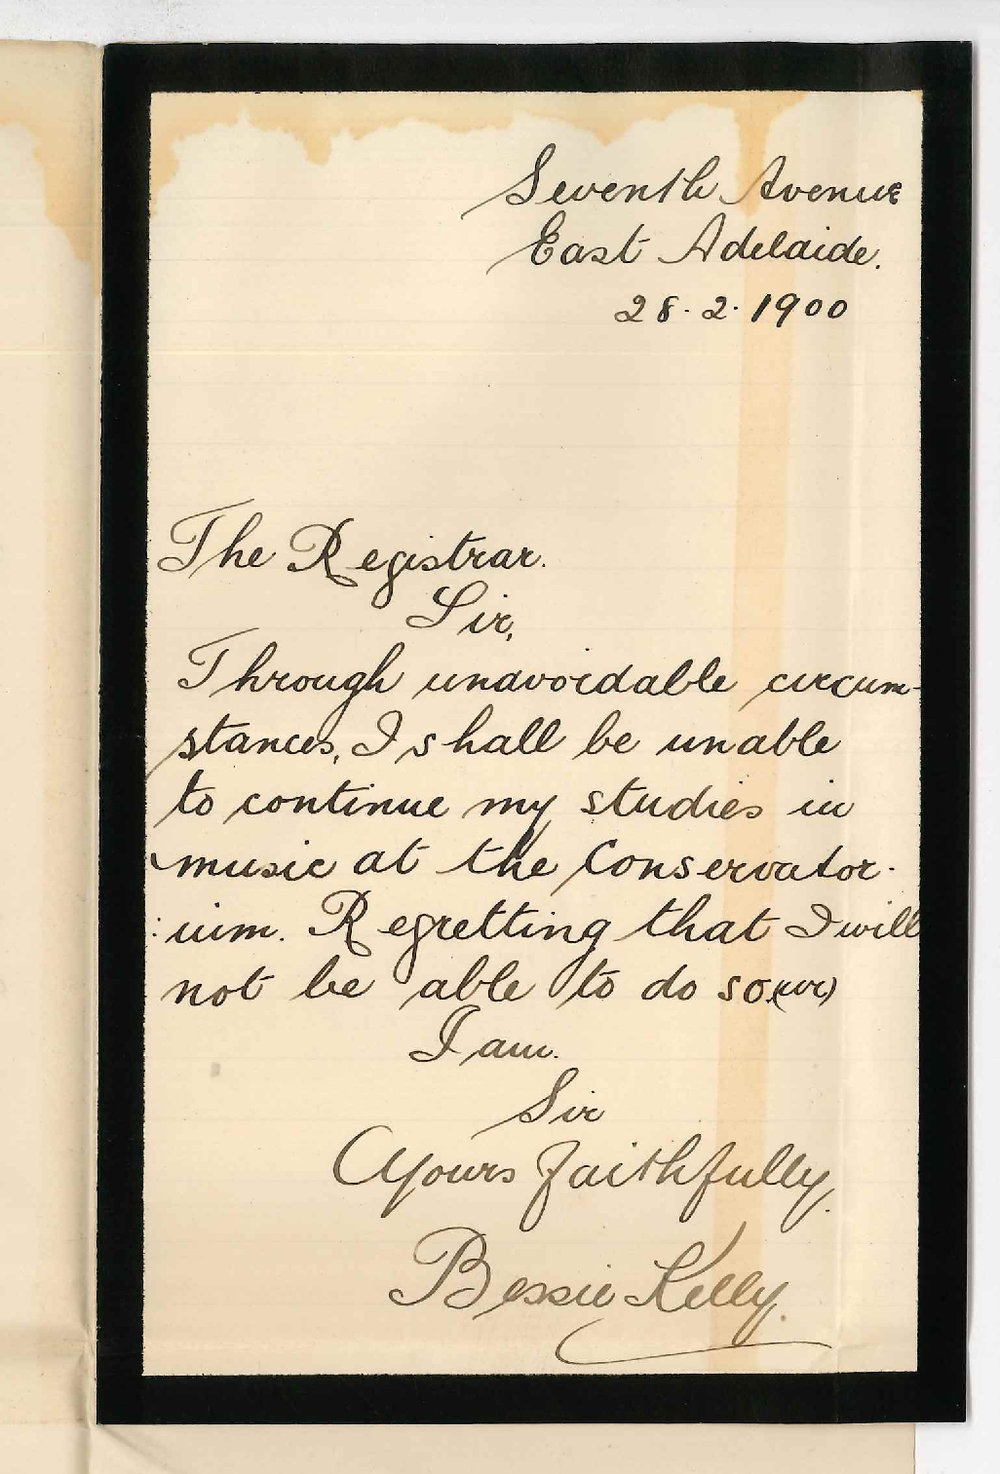 Seventh Avenue
East Adelaide.
28. 2. 1900
The Registrar.
Sir,
Through unavoidable circum-
stances, I shall be unable
to continue my studies in
music at the Conservator-
:ium. Regretting that I will
not be able to do so
I am.
Sir
Yours faithfully,
Bessie Kelly.